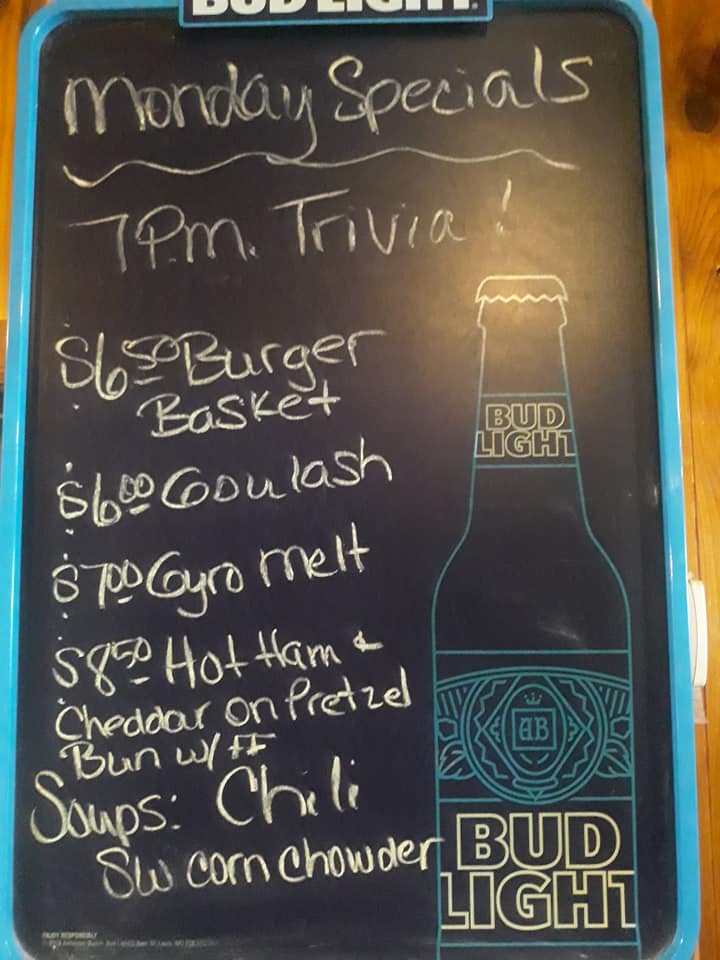 BUD LIGHT
Monday Specials
7 P.m. Trivia!
$6.50 Burger
Basket
$6.00 Goulash
$7.00 Gyro melt
$8.50 Hot Ham &
Cheddar on Pretzel
Bun w/ FF
Soups: Chili
SW corn chowder
BUD
LIGHT
AB
BUD
LIGHT
ENJOY RESPONSIBLY